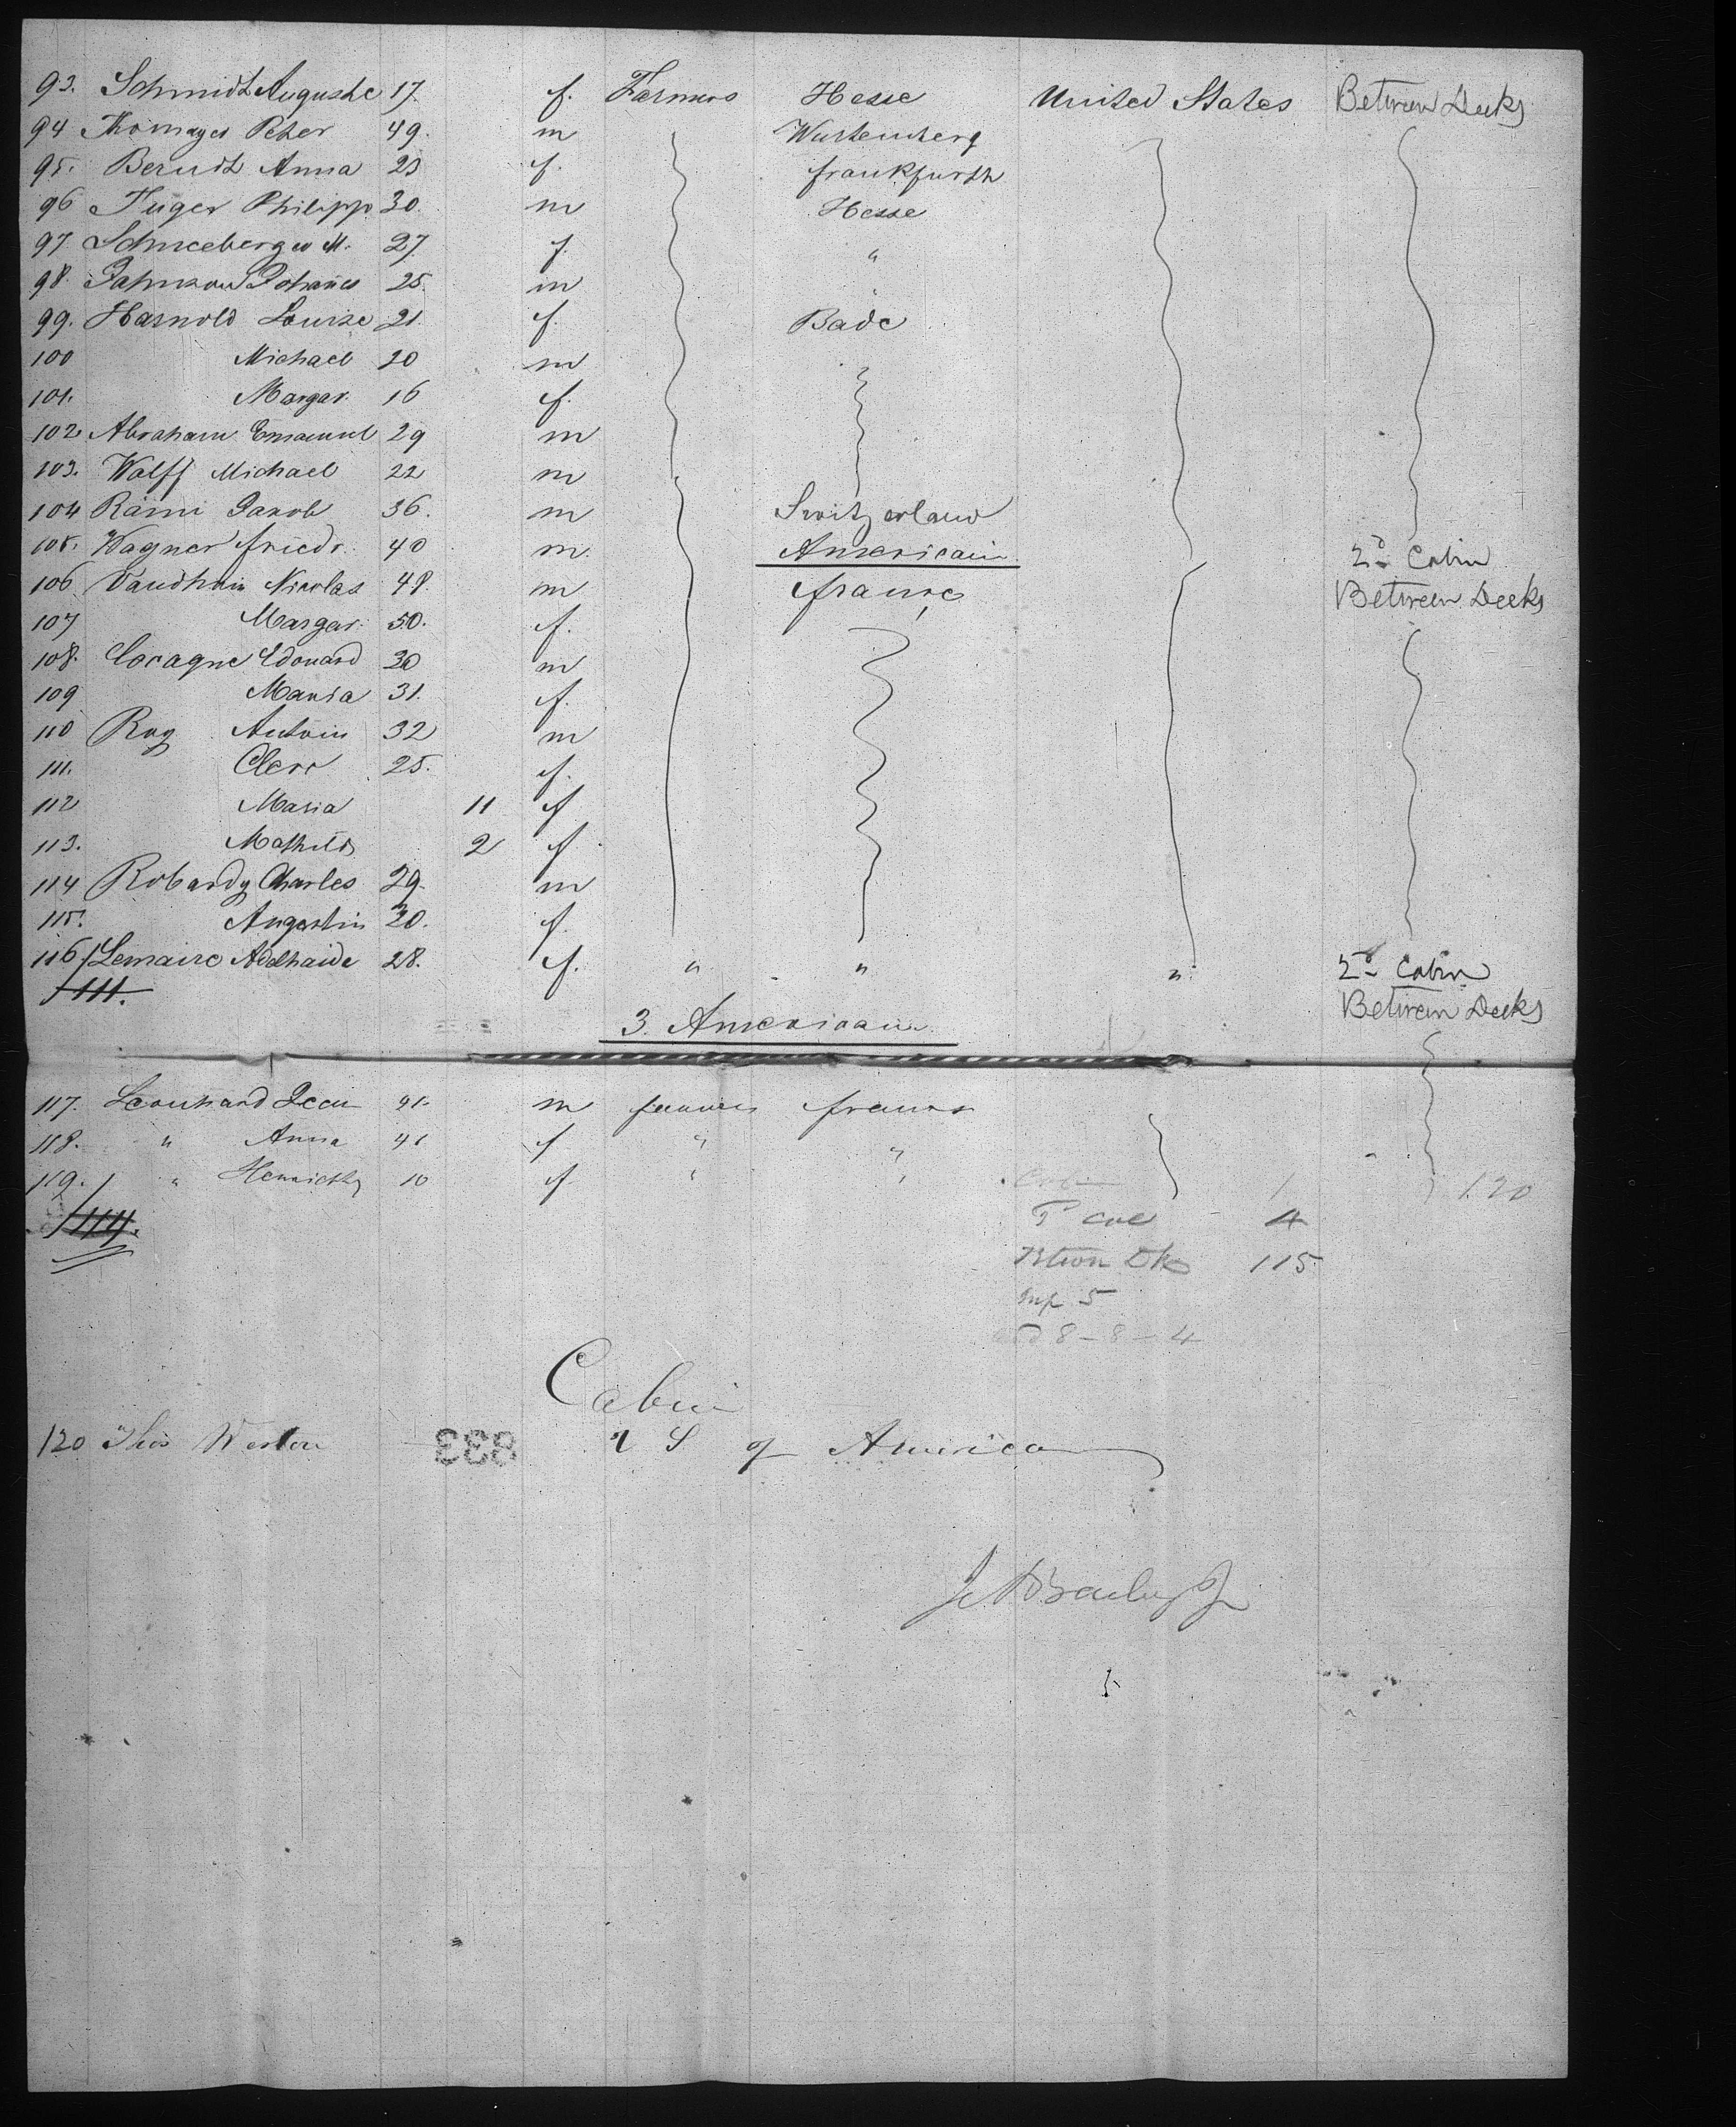 93. Schmidt Auguste 17. f. Farmers Hesse United States Between Decks
94 Thomayer Peter 49. m Wurtemberg
95. Berndt Anna 23 f. frankfurth
96 Füger Philipp 30. m Hesse
97. Schneeberger M. 27. f. "
98. Johannes 25. m "
99. Harnold Louise 21. f. Bade
100 Michael 20 m
101. Margar. 16 f.
102. Abraham Emanuel 29 m
103. Wolff Michael 22 m
104 Rämi Jakob 36. m Switzerland
105. Wagner friedr. 40 m. Americain 2d Cabin
106 Vaudhuin Nicolas 48. m france Between Decks
107 Margar. 50. f.
108. Coragne Edouard 30 m
109 Maria 31. f.
110 Roy Antoin 32 m
111. Cler 25. f.
112 Maria 11 f
113. Mathild 2 f
114 Robardy Charles 29. m
115. Augustin 30. f.
116 Lemaire Adelhaide 28. f. " " " 2d Cabin
111. Between Decks
3. Americain
117. Leonhard Jean 41. m farmers france
118. " Anna 41 f " "
119. " Henriette 10 f " " Cabin 1 120
114. 4
115
5
8-8-4
Cabin
120 Thos Weston U S of America
833